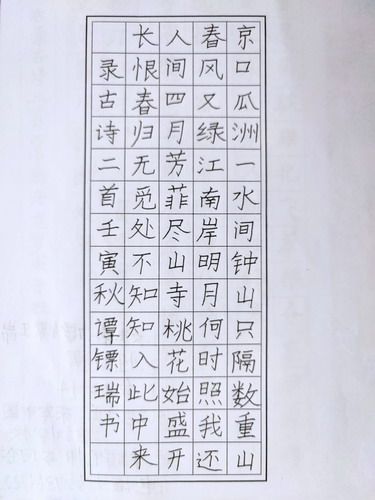 京口瓜洲一水间钟山只隔数重山
春风又绿江南岸明月何时照我还
人间四月芳菲尽山寺桃花始盛开
长恨春归无觅处不知知入此中来
录古诗二首壬寅秋谭镖瑞书